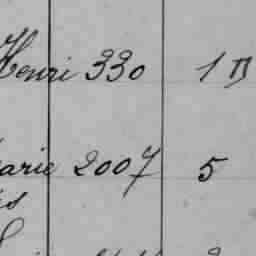 Henri 330 1 B
arie 2007 5